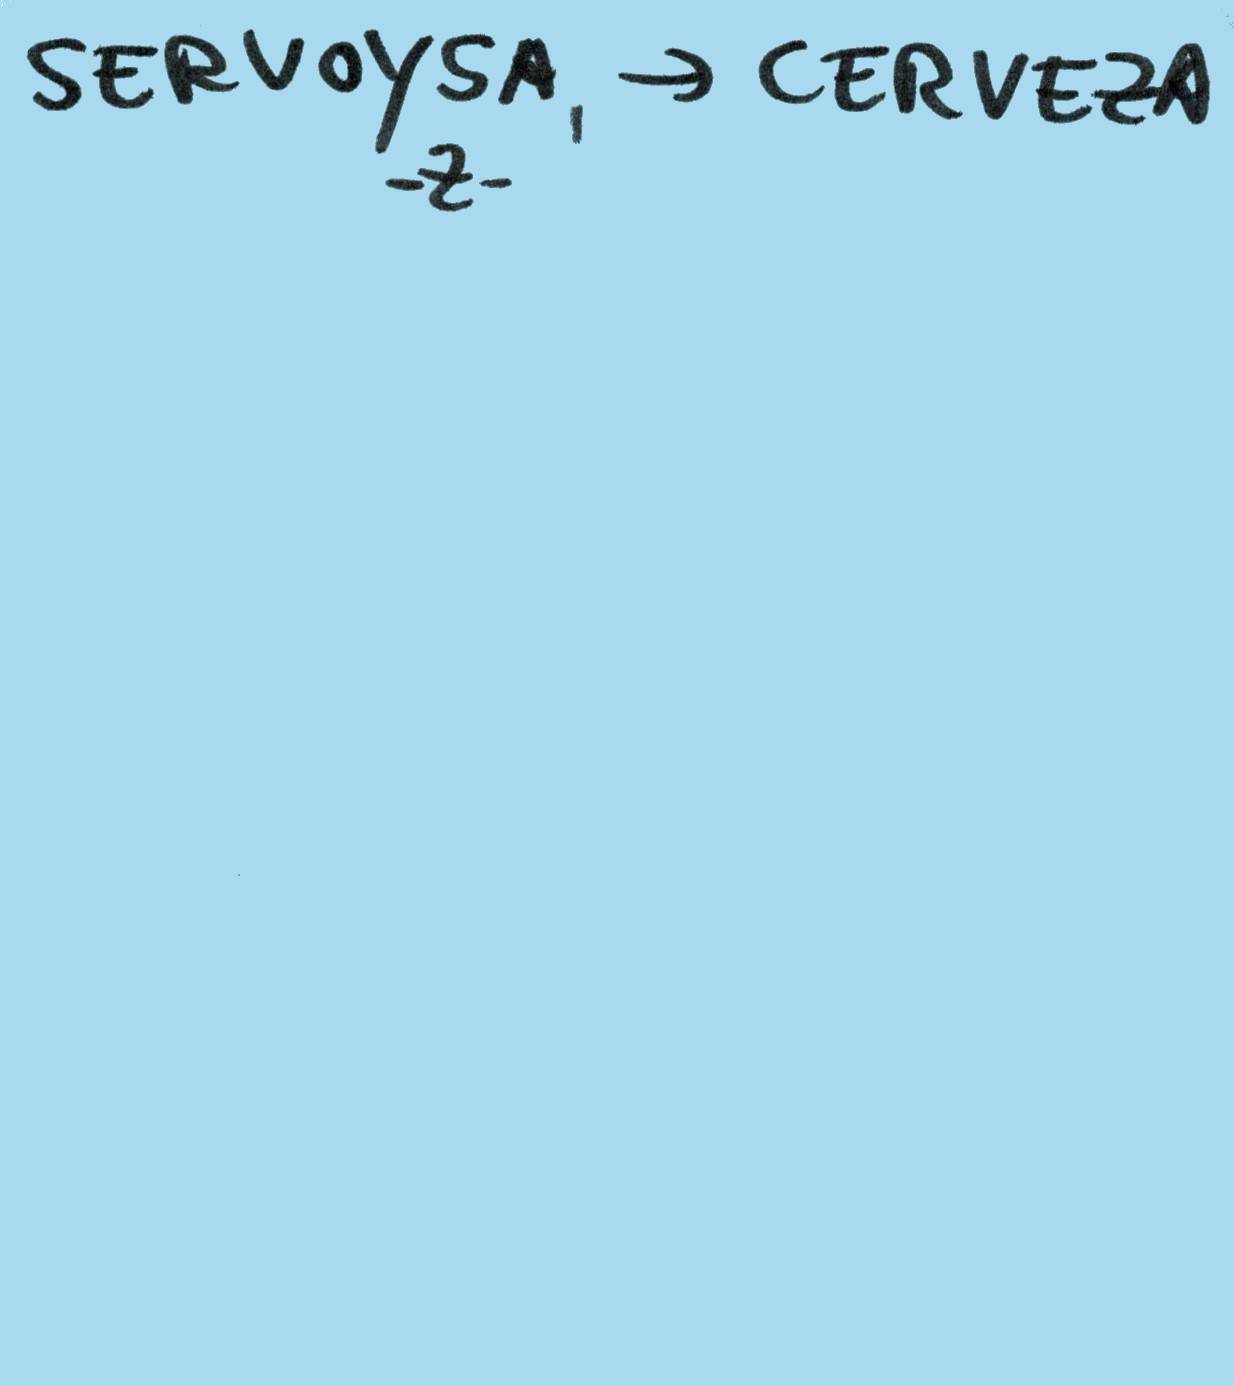 SERVOYSA, → CERVEZA
-Z-